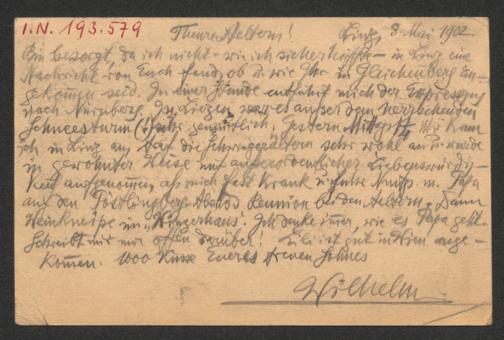 I.N. 193.579
Theure Aeltern! Linz, 8. Mai 1902
Bin besorgt, da ich nicht – wie ich sicher hoffte – in Linz eine
Nachricht von Euch fand, ob u. wie Ihr in Gleichenberg an-
gekommen seid. In einer Stunde entführt mich der Expresszug
nach Nürnberg. In Linz war es außer dem herrschenden
Schneesturm (!) sehr gemütlich. Gestern Mittag kam
ich in Linz an, traf die Schwiegerältern sehr wohl an u. wurde
in gewohnter Weise mit außerordentlicher Liebenswürdig-
keit aufgenommen, aß mich fast krank u. mit Papa
auf den Pöstlingberg. Abends Reunion bei den Aeltern. Dann
Weinkneipe im "Winzerhaus". Ich denke immer, wie es Papa geht.
Schreibt mir nur offen darüber! Lili ist gut in Wien ange-
kommen. 1000 Küsse Eueres treuen Sohnes
Wilhelm